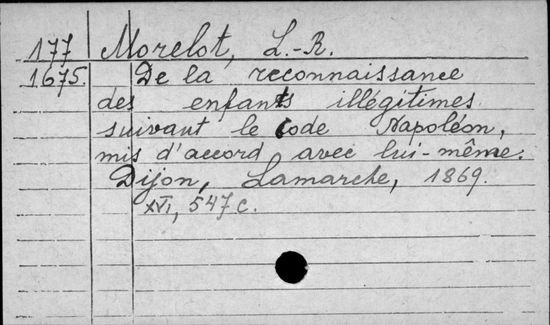 177 Morelot, L.-R.
1675. De la reconnaissance
des enfants illégitimes
suivant le Code Napoléon,
mis d'accord avec lui-même.
Dijon, Lamarche, 1869.
XVI, 547 c.